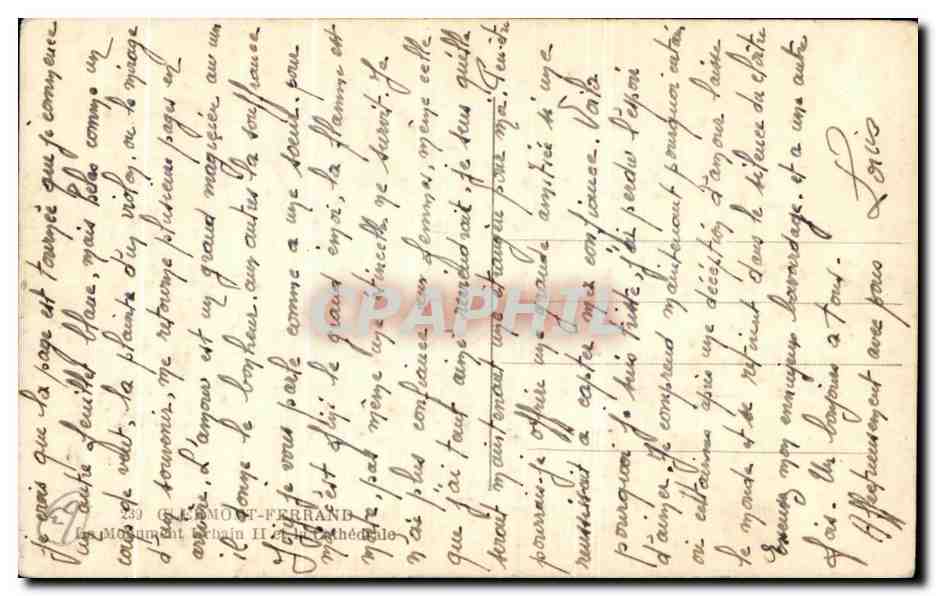 Je crois que la page est tournée enfin je commence
un autre feuillet blanc, mais hélas comme un
orage vient, la plainte d'un violon, ou le mirage
d'un souvenir, me retourne plusieurs pages en
arrière. L'amour est un grand magicien au un
il donne le bonheur aux autres la souffrance
Je vous parle comme a une soeur, pour
moi c'est fini le grand émoi, la flamme est
morte, pas même une étincelle ne survit. Je
n'ai plus confiance aux femmes, même celle
que j'ai tant aimé reviendrait, je sens qu'elle
serait maintenant une étrangère pour moi. Peut-être
pourrais-je offrir une grande amitié si une
réussissait a capter ma confiance. Voilà
pourquoi je suis triste, j'ai perdu l'espoir
d'aimer. Je comprend maintenant pourquoi certains
ou certaines après une déception d'amour laisse
le monde et se retire dans le silence du cloître
Excusez mon ennuyeux bavardage et a une autre
fois. Un bonjour a tous.
Affectueusement avec vous
Louis
239 CLERMONT-FERRAND
Le Monument Urbain II et la Cathédrale
CPAPHIL